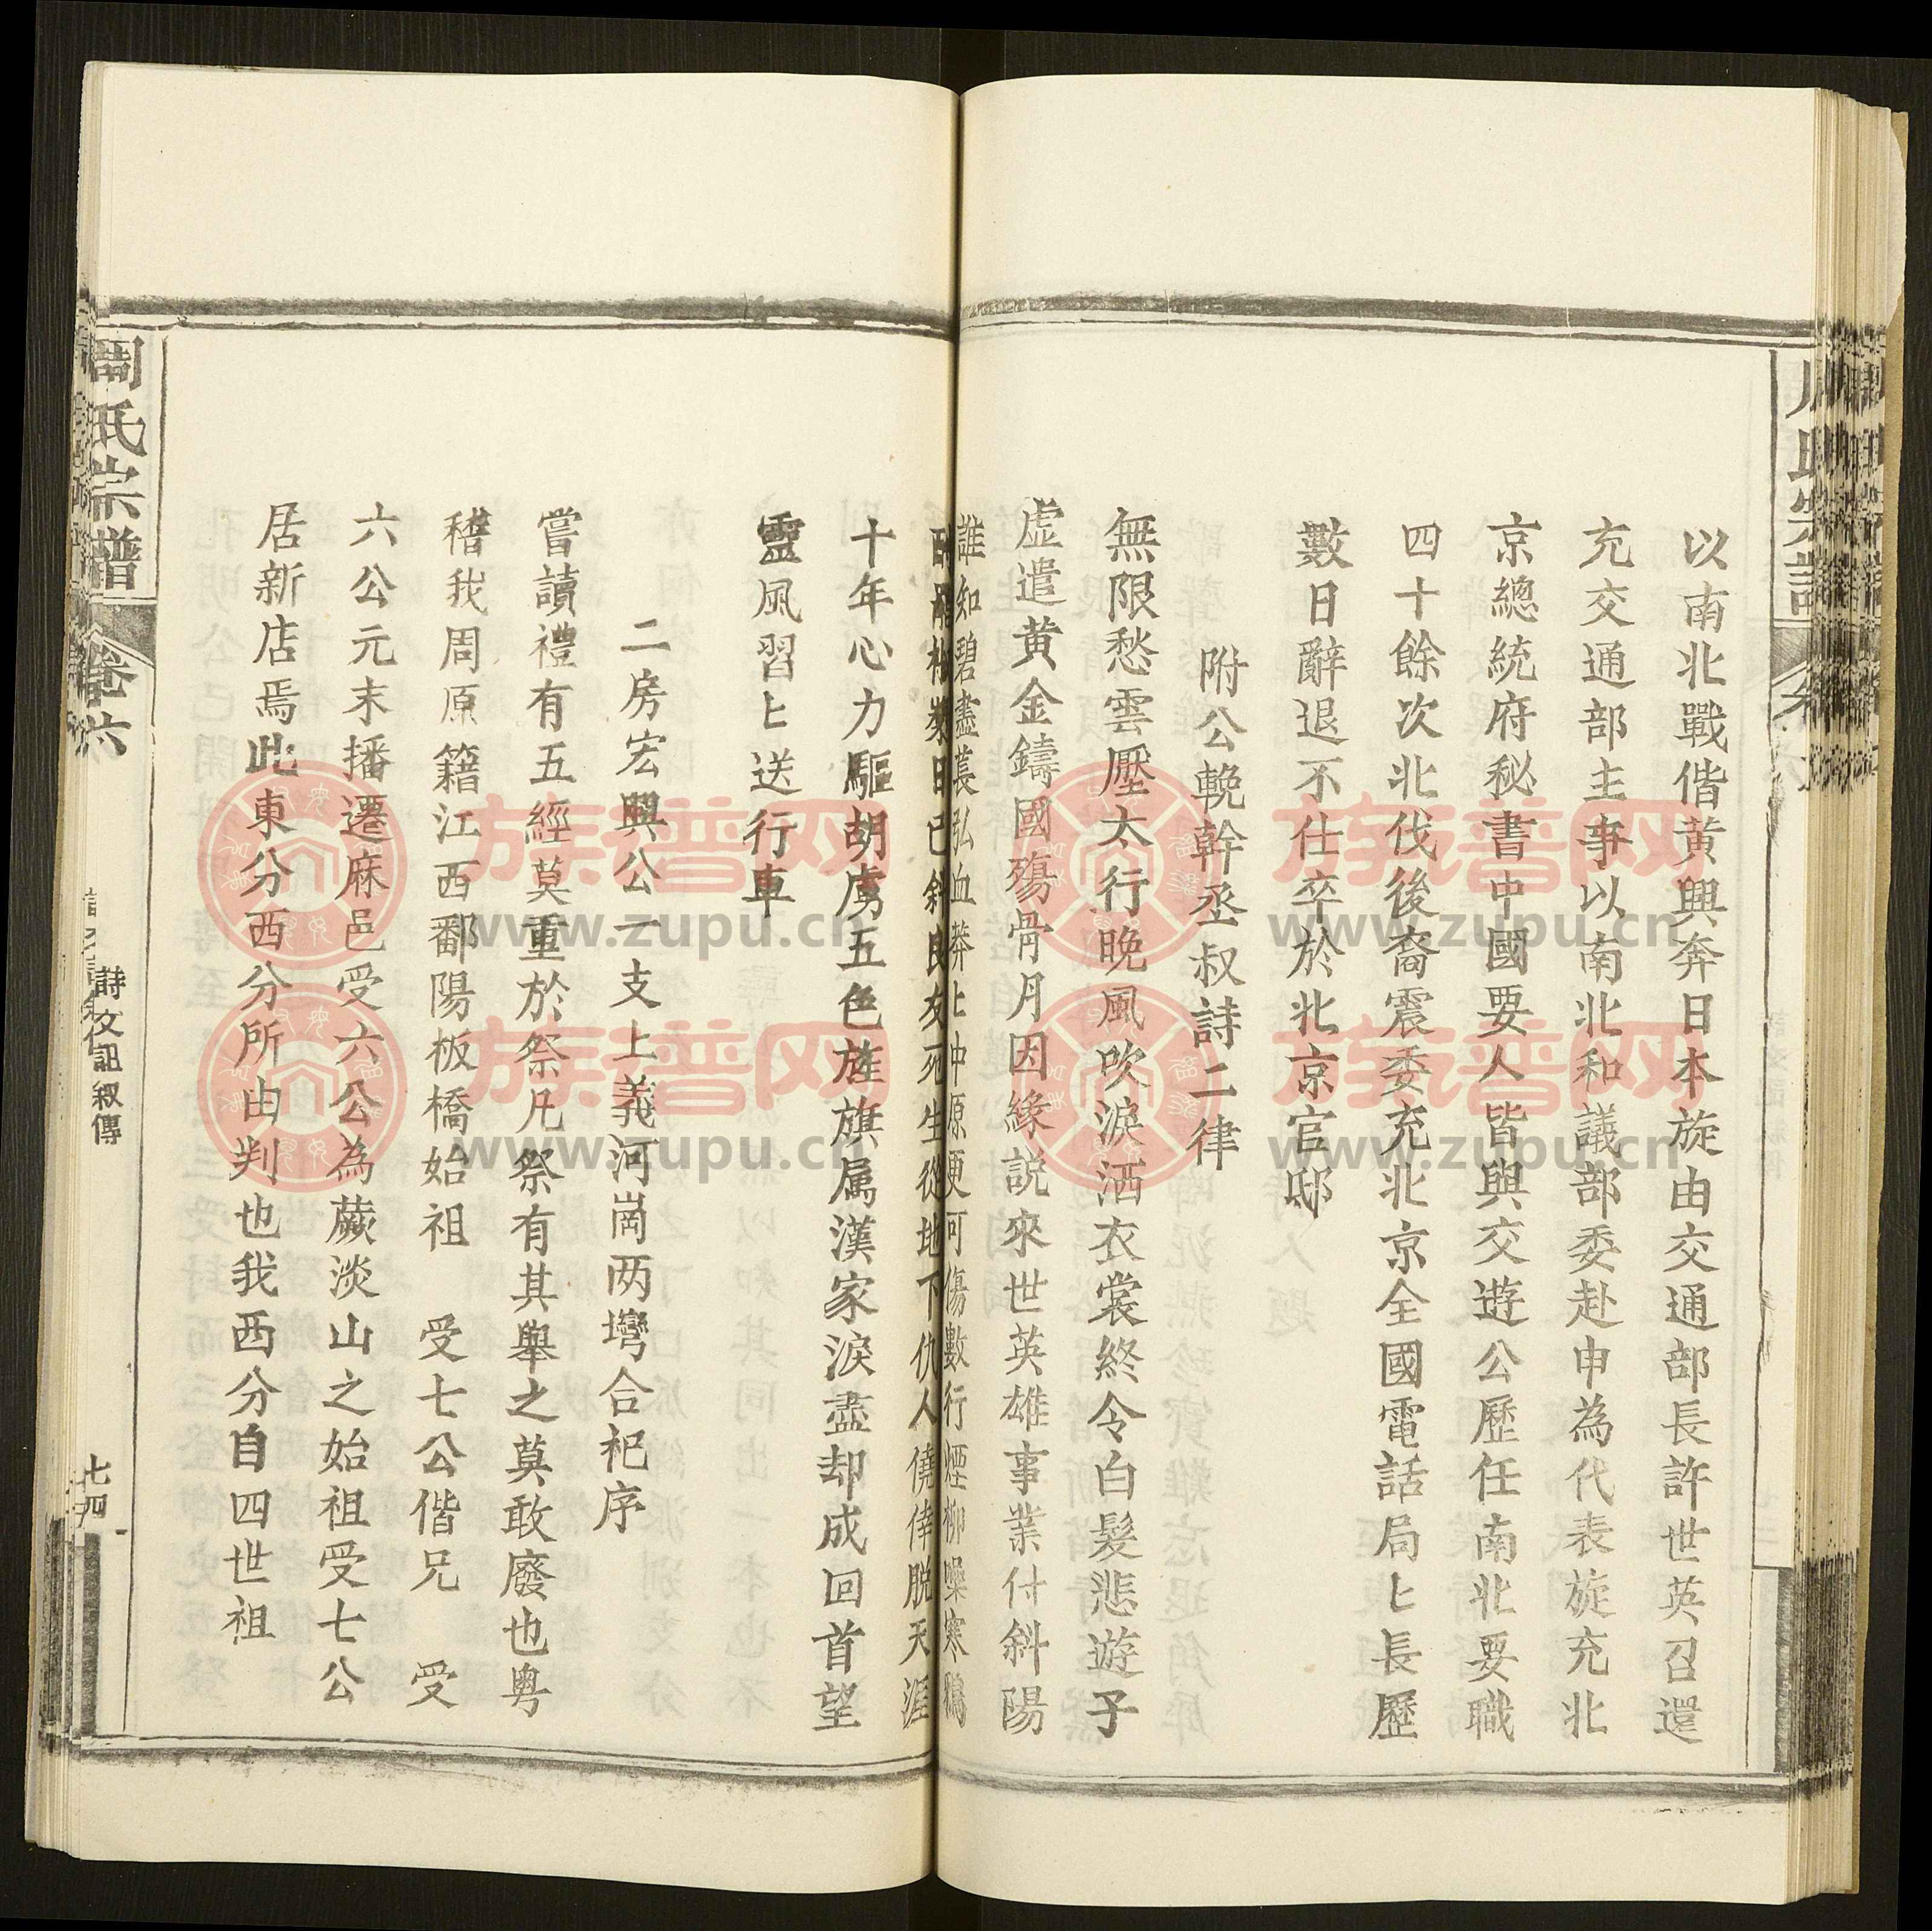 以南北戰偕黄興奔日本旋由交通部長許世英召還
充交通部主事以南北和議部委赴申為代表旋充北
京總統府秘書中國要人皆與交遊公歷任南北要職
四十餘次北伐後裔震委充北京全國電話局匕長歷
數日辭退不仕卒於北京官邸
附公輓幹丞叔詩二律
無限愁雲壓太行晚風吹淚洒衣裳終令白髮悲遊子
虚遣黄金鑄國殤骨月因緣説來世英雄事業付斜陽
誰知碧盡萇弘血莽匕中原更可傷數行煙柳噪寒鴉
日已斜良友死生從地下仇人僥倖脱天涯
十年心力驅胡虜五色旌旗属漢家淚盡却成回首望
靈風習匕送行車
二房宏興公一支上義河崗两塆合祀序
嘗讀禮有五經莫重於祭凡祭有其舉之莫敢廢也粤
稽我周原籍江西鄱陽板橋始祖 受七公偕兄 受
六公元末播遷麻邑受六公為蕨淡山之始祖受七公
居新店焉此東分西分所由判也我西分自四世祖
周氏宗譜 卷六 詩文記叙傳 七四
族譜网
www.zupu.cn
族譜网
www.zupu.cn
族譜网
www.zupu.cn
族譜网
www.zupu.cn